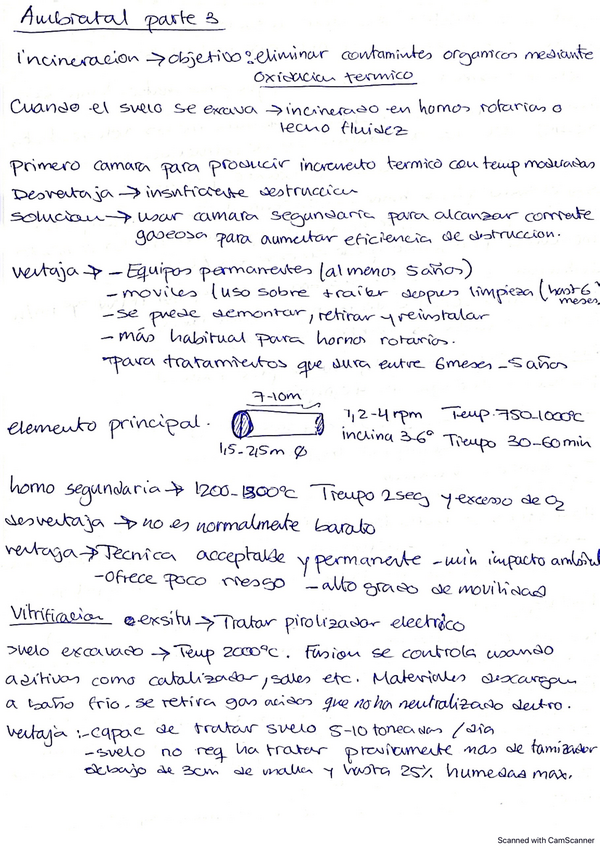 Ambiatal parte 3
incineracion → objetivo: eliminar contamintes organicos mediante
oxidacion termico
Cuando el suelo se excava → incinerado en hornos rotarias o
lecho fluidez
primero camara para producir incremento termico con temp moderadas
Desventaja → insuficiente destruccion
solucion → usar camara segundaria para alcanzar corriente
gaseosa para aumentar eficiencia de destruccion.
ventaja → - Equipos permanentes (al menos 5 años)
- moviles (uso sobre trailer despues limpieza (hast 6
meses)
- se puede demontar, retirar y reinstalar
- más habitual para hornos rotarios.
- para tratamientos que dura entre 6 meses - 5 años
7-10m
elemento principal. 1,2-4 rpm Temp. 750-1000°c
inclina 3-6° Tiempo 30-60 min
1,5-2,5m Ø
horno segundaria → 1200-1300°c Tiempo 2 seg y exceso de O2
desventaja → no es normalmente barato
ventaja → Tecnica acceptable y permanente - min impacto ambital
- ofrece poco riesgo - alto grado de movilidad
Vitrificacion exsitu → Tratar pirolizador electrico
suelo excavado → Temp 2000°c. Fusion se controla usando
aditivos como catalizador, sales etc. Materiales descargan
a baño frio. se retira gas acidos que no ha neutralizado dentro.
Ventaja :- capac de tratar suelo 5-10 toneadas / dia
- suelo no req ha tratar previamente mas de tamizador
debajo de 3cm de malla y hasta 25% humedad max.
Scanned with CamScanner